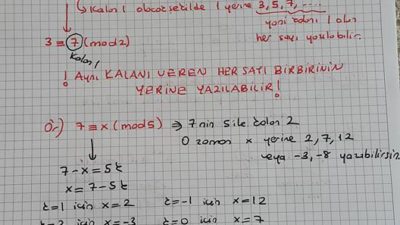 Kalanı 1 olacak şekilde 1 yerine 3, 5, 7, ....
yani kalanı 1 olan
her sayı yazılabilir.
3 ≡ 7 (mod2)
kalan 1
! Aynı KALANI VEREN HER SAYI BİRBİRİNİN
YERİNE YAZILABİLİR !
Ör) 7 ≡ x (mod5) ⇒ 7 nin 5 ile kalanı 2
O zaman x yerine 2, 7, 12
veya -3, -8 yazabilirsin
7 - x = 5t
x = 7 - 5t
t=1 için x = 2 t=-1 için x = 12
t=2 için x = -3 t=0 için x = 7